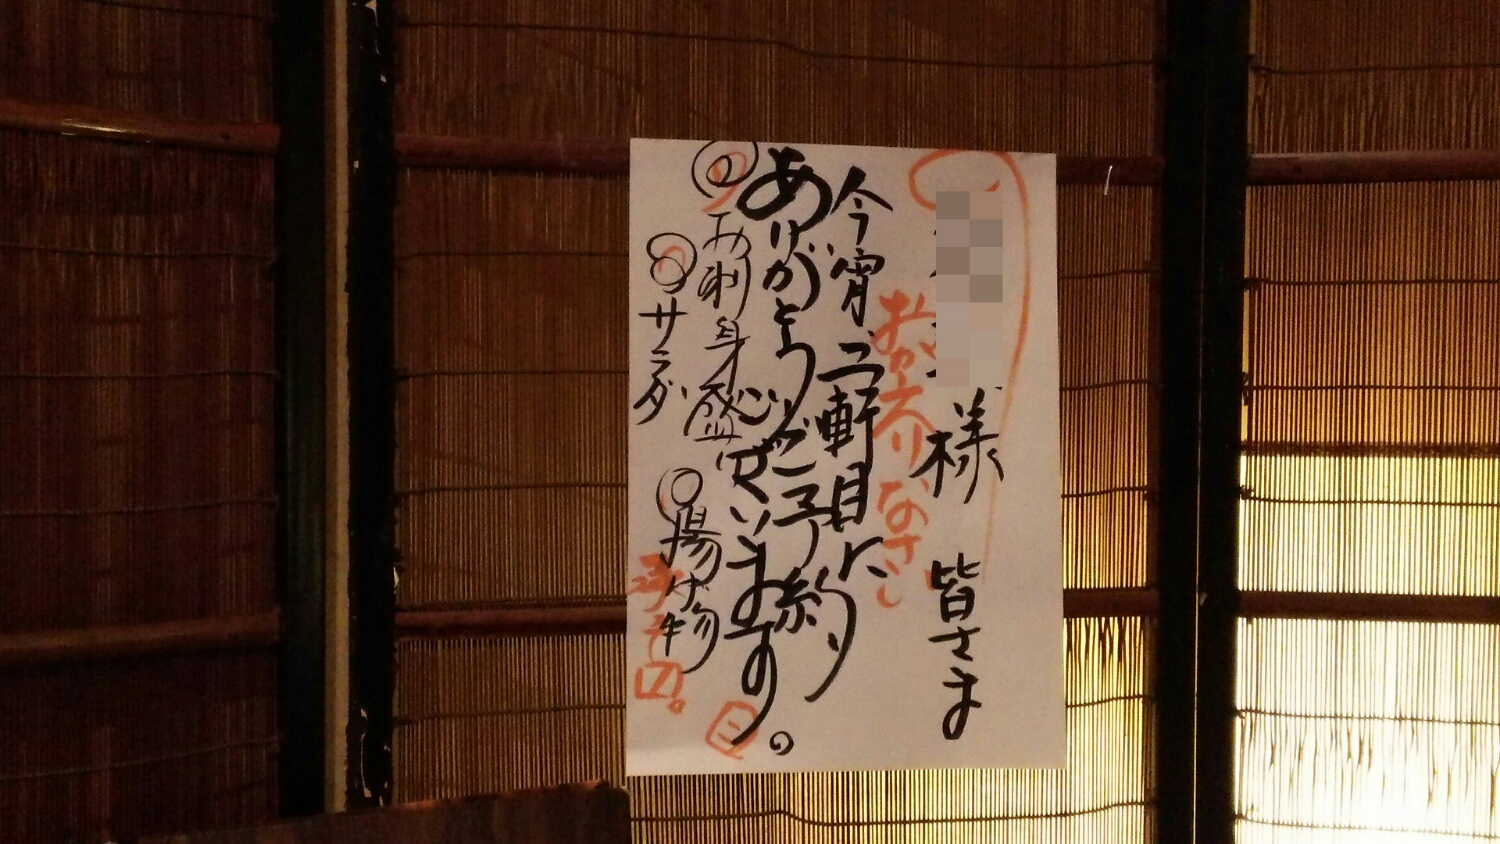 様 皆さま
おかえりなさい
今宵、二軒目に
ありがとうご予約
心ございます。
お刺身盛
サラダ
揚げ物